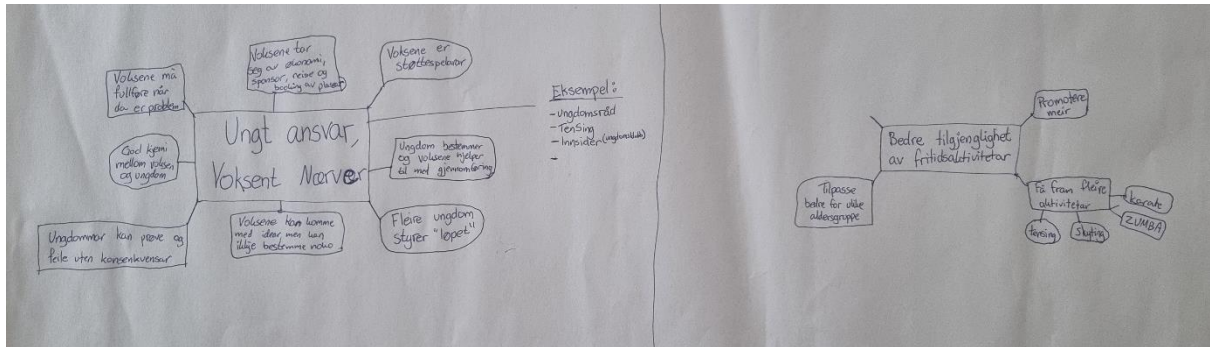 Voksene må
fullføre når
da er problem
Voksene tar
seg av økonomi,
sponsor, reise og
booking av plasser
Voksene er
støttespelarar
Ungt ansvar,
Voksent Nærver
God kjemi
mellom voksen
og ungdom
Ungdom bestemmer
og voksene hjelper
til med gjennomføring
Ungdommar kan prøve og
feile uten konsenkvensar
Voksene kan komme
med idear men kan
ikkje bestemme noko
Fleire ungdom
styrer "løpet"
Eksempel:
- Ungdomsråd
- TenSing
- Innsider (ungdomsklubb)
-
Promotere
meir
Bedre tilgjenglighet
av fritidsaktivitetar
Tilpasse
bedre for ulike
aldersgruppe
Få fram fleire
aktivitetar
karate
ZUMBA
tensing
Skyting